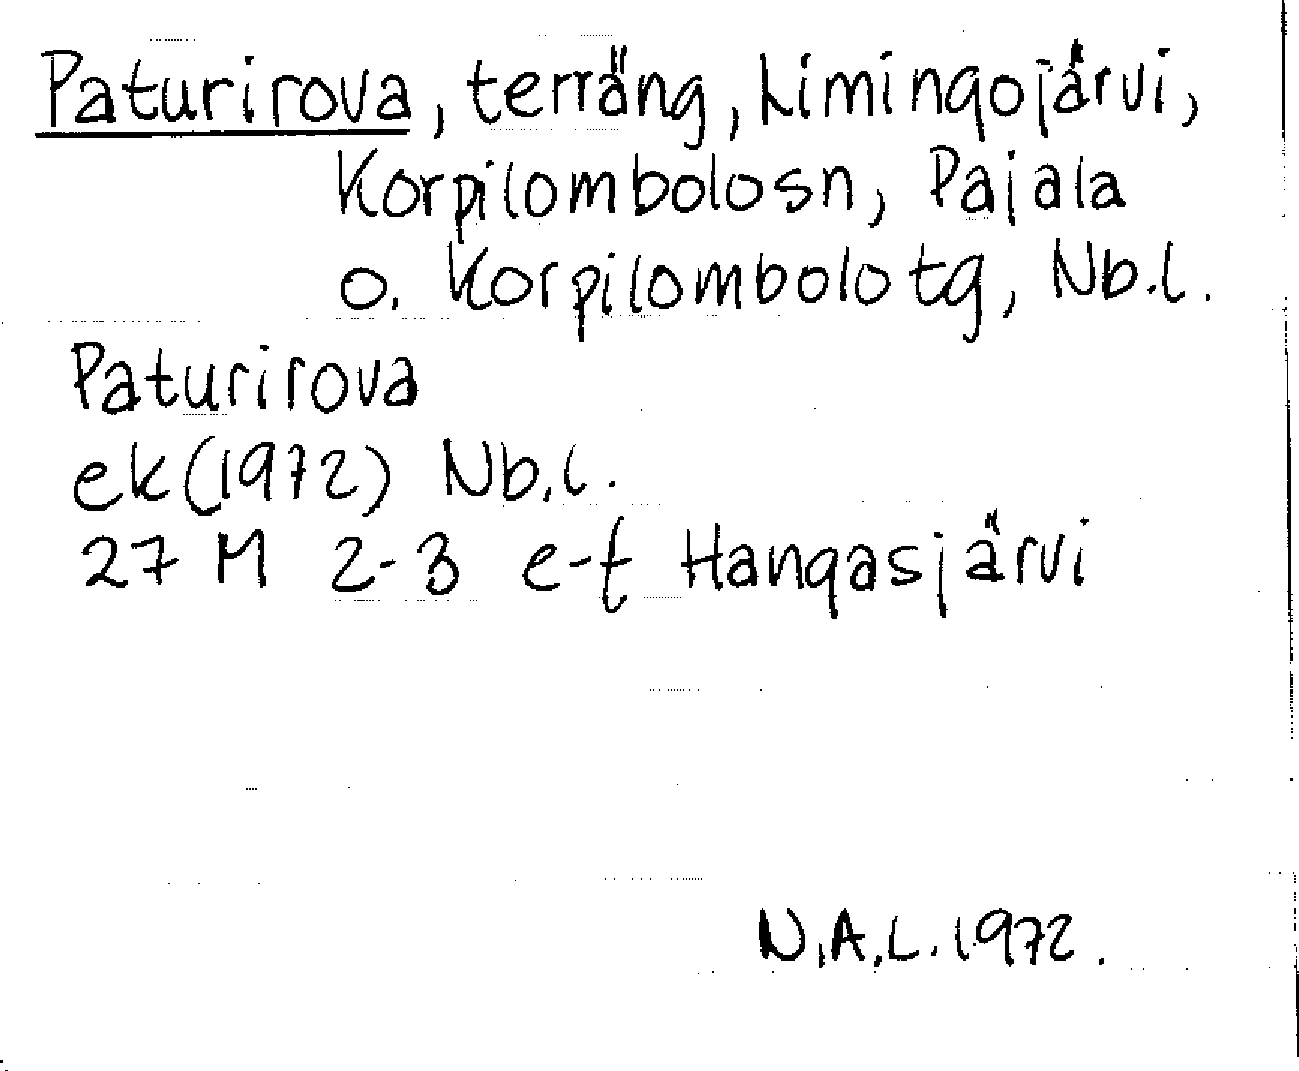 Paturirova, terräng, Limingojärvi,
Korpilombolosn, Pajala
o. Korpilombolo tg, Nb.l.
Paturirova
ek (1972) Nb.l.
27 M 2-3 e-f Hangasjärvi
N.A.L. 1972.